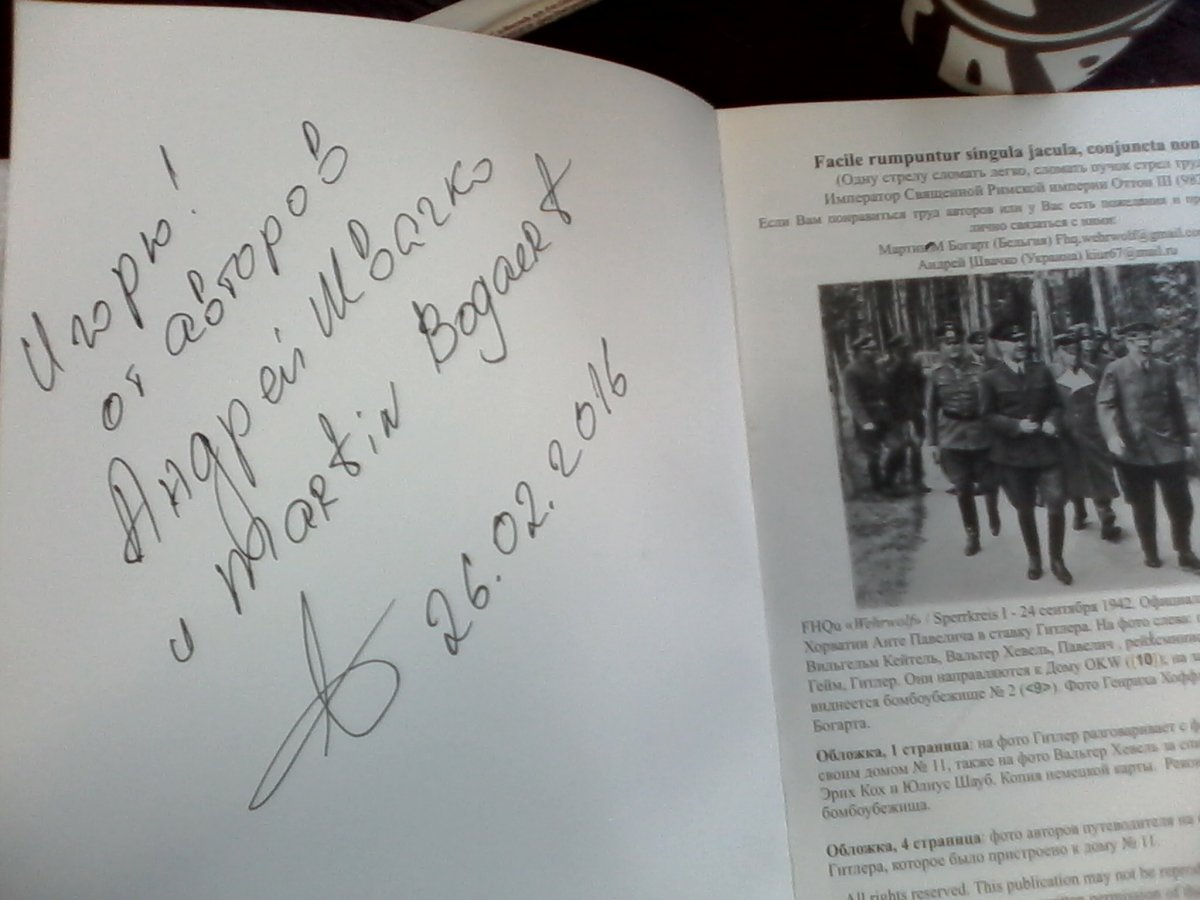 Игорю!
от авторов
Андрей Швачко
и Martin Bogaert
26.02.2016
Facile rumpuntur singula jacula, conjuncta non
(Одну стрелу сломать легко, сломать пучок стрел
Император Священной Римской империи Оттон III
Если Вам понравиться труд авторов или у Вас есть пожелания и
лично связаться с ними:
Мартин М Богарт (Бельгия) Fhq.wehrwolf@gmail.co
Андрей Швачко (Украина) kiur67@mail.ru
FHQu «Wehrwolf» / Sperrkreis I - 24 сентября 1942.
Хорватии Анте Павелича в ставку Гитлера. На фото слева:
Вильгельм Кейтель, Вальтер Хевель, Павелич,
Гейм, Гитлер. Они направляются к Дому OKW ((10)), на
виднеется бомбоубежище № 2 (<9>). Фото Генриха
Богарта.
Обложка, 1 страница: на фото Гитлер разговаривает с
своим домом № 11, также на фото Вальтер Хевель за
Эрих Кох и Юлиус Шауб. Копия немецкой карты.
бомбоубежища.
Обложка, 4 страница: фото авторов путеводителя на
Гитлера, которое было пристроено к дому № 11.
All rights reserved. This publication may not be